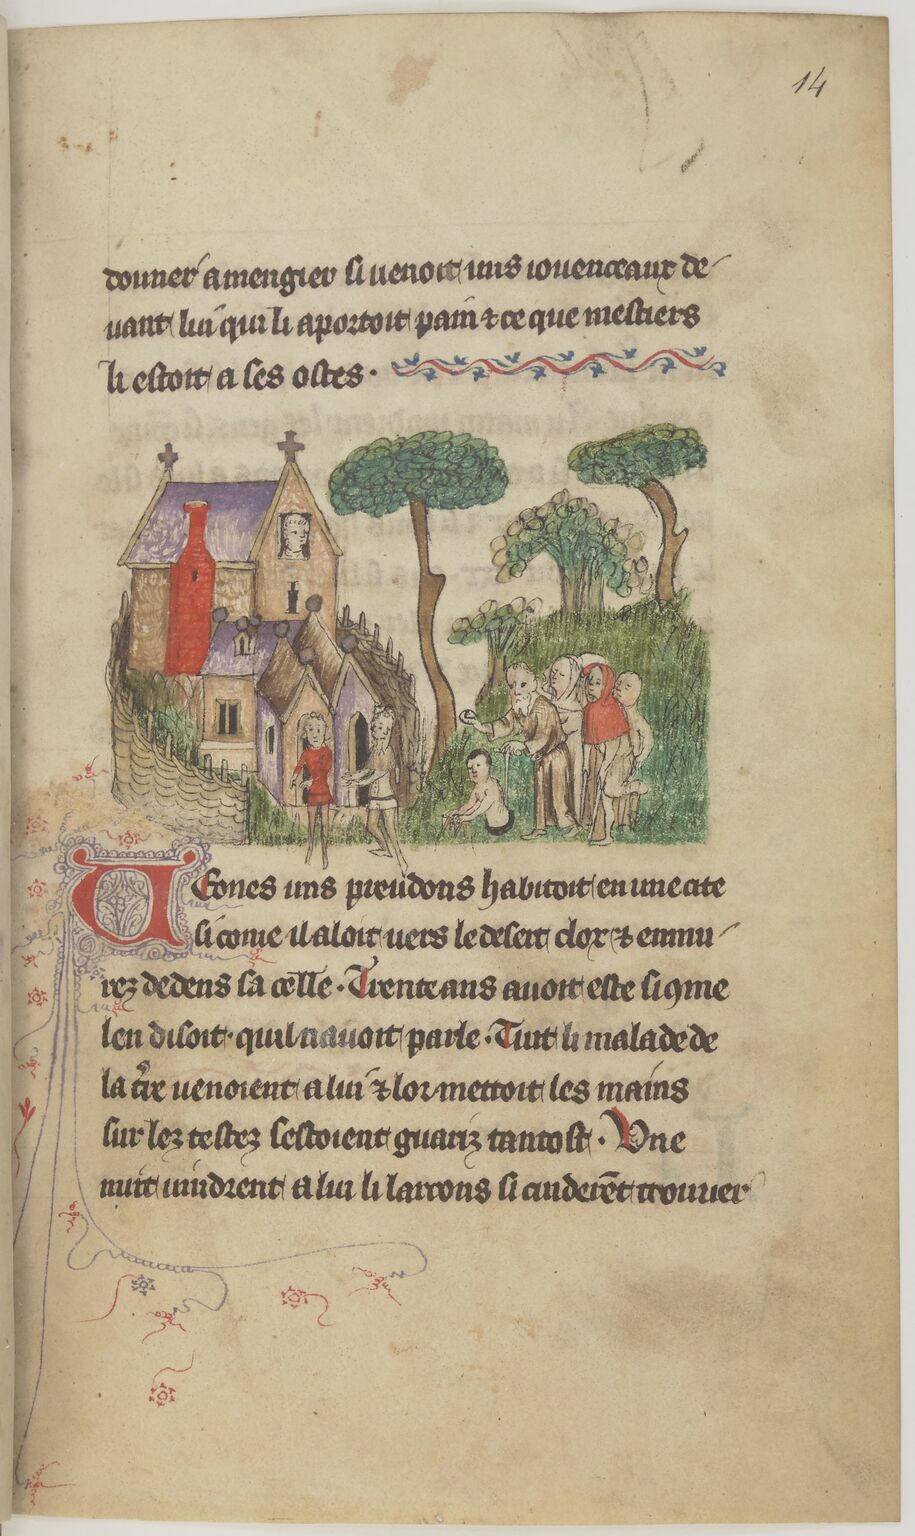 14
donner a mengier si uenoit uns iouenceaux de-
uant lui qui li aportoit pain ⁊ ce que mestiers
li estoit a ses ostes.
Teones uns preudons habitoit en une cite
si come il aloit uers le desert clox ⁊ enmu-
rez dedens sa celle. Trente ans auoit este si ꝯme
len disoit. quil nauoit parle. Tuit li malade de
la t̾re uenoient a lui ⁊ lor mettoit les mains
sur lez testez sestoient guariz tantost. Une
nuit uindrent a lui li larrons si cuiderẽt trouuer